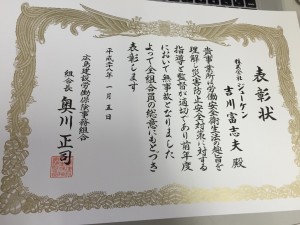 表彰状
株式会社 ジューケン
吉川富志夫 殿
貴事業所は労働安全衛生法の趣旨を
理解し災害防止安全対策に対する
指導と監督が適切であり前年度
において無事故となりました
よって全組合員の総意にもとづき
表彰します
平成二十六年 一月五日
広島建設労働保険事務組合
組合長 奥川正司